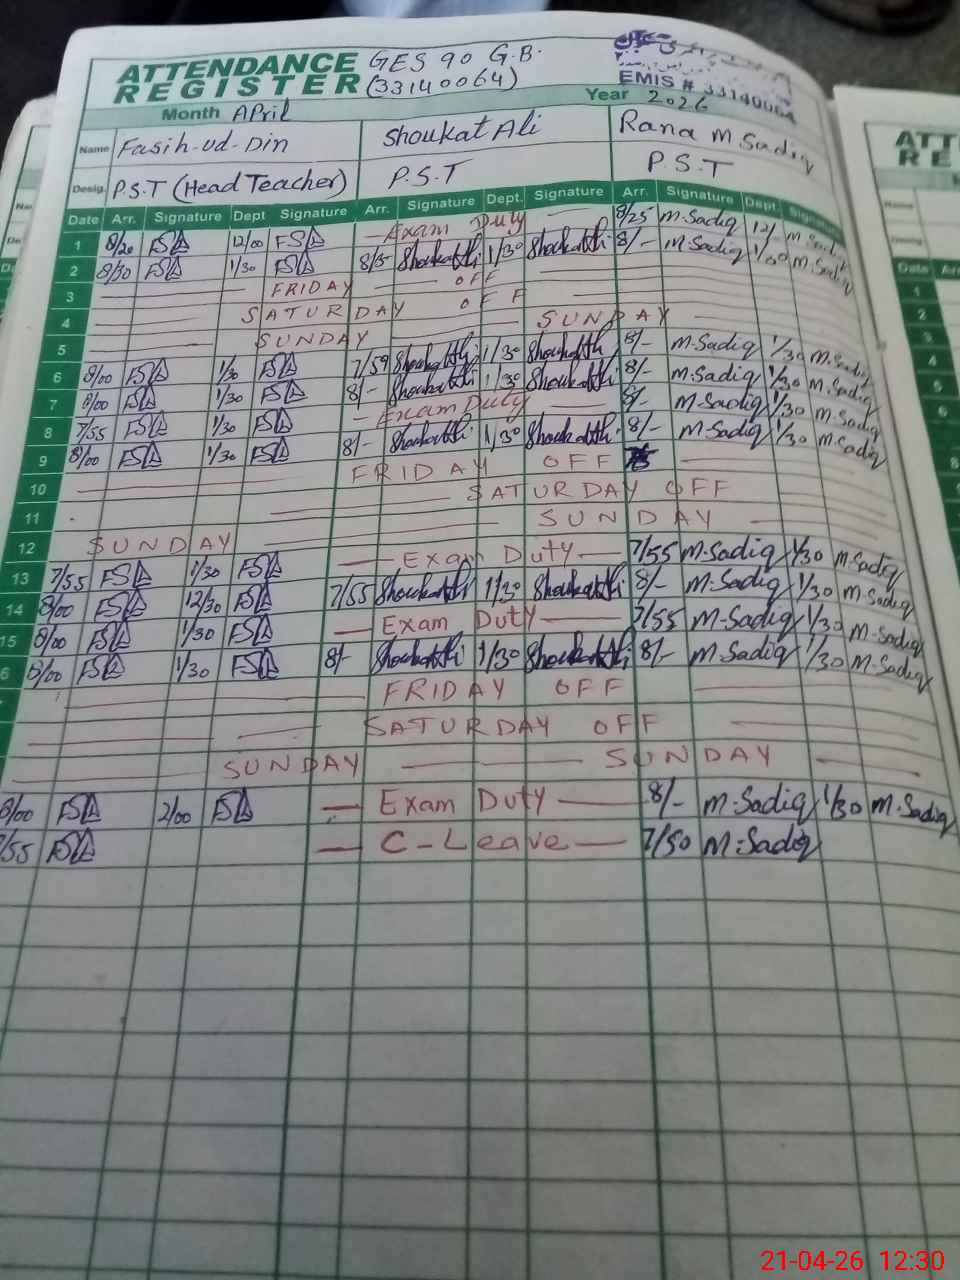 ATTENDANCE REGISTER GES 90 G.B. (33140064)
EMIS # 33140064
Month April Year 2026
Name Fasih-ud-Din Shoukat Ali Rana M Sadiq
Desig. P.S.T (Head Teacher) P.S.T P.S.T
Date Arr. Signature Dept Signature Arr. Signature Dept. Signature Arr. Signature Dept. Signature
1 8/20 12/00 Exam Duty 8/25 M.Sadiq 12/- M.Sadiq
2 8/30 1/30 8/5 Shoukat Ali 1/30 Shoukat Ali 8/- M.Sadiq 1/30 M.Sadiq
3 FRIDAY OFF
4 SATURDAY OFF
5 SUNDAY SUNDAY
6 8/00 1/30 7/59 Shoukat Ali 1/30 Shoukat Ali 8/- M.Sadiq 1/30 M.Sadiq
7 8/00 1/30 8/- Shoukat Ali 1/30 Shoukat Ali 8/- M.Sadiq 1/30 M.Sadiq
8 7/55 1/30 Exam Duty 8/- M.Sadiq 1/30 M.Sadiq
9 8/00 1/30 8/- Shoukat Ali 1/30 Shoukat Ali 8/- M.Sadiq 1/30 M.Sadiq
10 FRIDAY OFF
11 SATURDAY OFF
12 SUNDAY SUNDAY
13 7/55 1/30 Exam Duty 7/55 M.Sadiq 1/30 M.Sadiq
14 8/00 12/30 7/55 Shoukat Ali 1/30 Shoukat Ali 8/- M.Sadiq 1/30 M.Sadiq
15 8/00 1/30 Exam Duty 7/55 M.Sadiq 1/30 M.Sadiq
6 8/00 1/30 8/- Shoukat Ali 1/30 Shoukat Ali 8/- M.Sadiq 1/30 M.Sadiq
FRIDAY OFF
SATURDAY OFF
SUNDAY SUNDAY
8/00 2/00 Exam Duty 8/- M.Sadiq 1/30 M.Sadiq
7/55 C-Leave 7/50 M.Sadiq
21-04-26 12:30